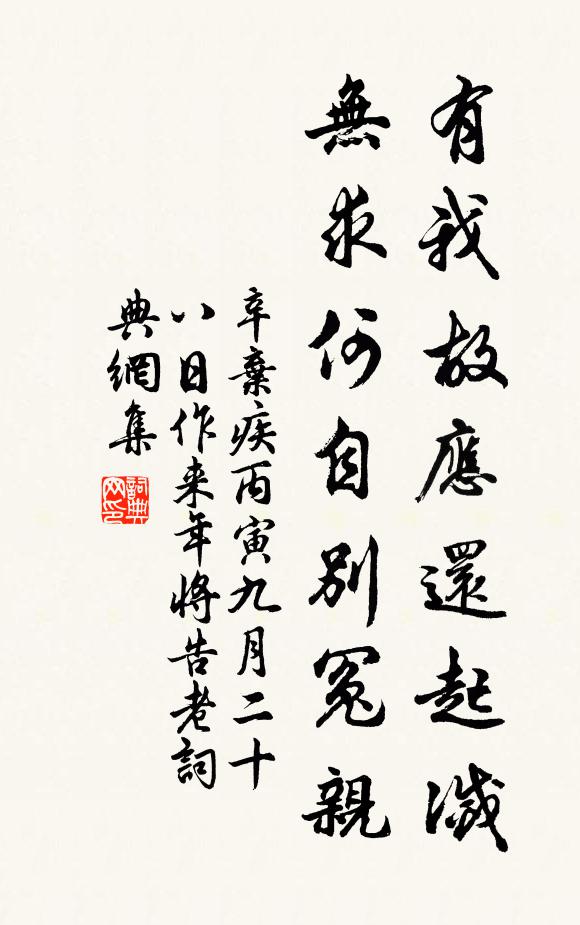 有我故應還起滅
無求何自別冤親
辛棄疾丙寅九月二十
八日作来年將告老詞
典網集
詞典网印